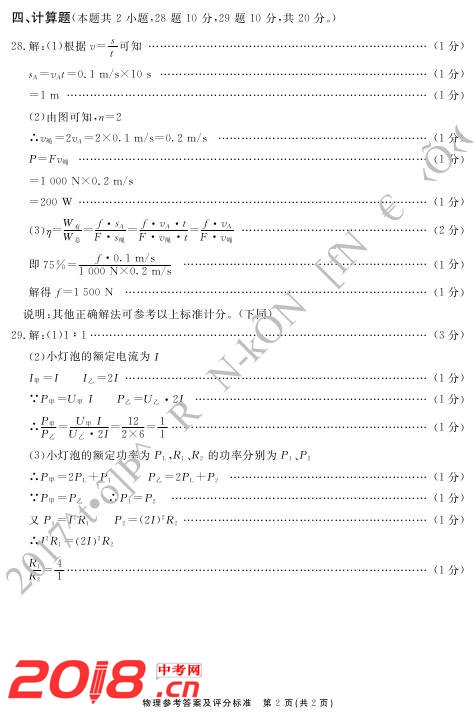 四、计算题(本题共 2 小题,28 题 10 分,29 题 10 分,共 20 分。)
28.解:(1)根据 v=s/t可知 ……(1 分)
sA=vAt=0.1 m/s×10 s ……(1 分)
=1 m ……(1 分)
(2)由图可知,n=2
∴v绳=2vA=2×0.1 m/s=0.2 m/s ……(1 分)
P=Fv绳 ……(1 分)
=1 000 N×0.2 m/s
=200 W ……(1 分)
(3)η=W有/W总=f·sA/F·s绳=f·vA·t/F·v绳·t=f·vA/F·v绳 ……(2 分)
即 75%=f·0.1 m/s/1 000 N×0.2 m/s ……(1 分)
解得 f=1 500 N ……(1 分)
说明:其他正确解法可参考以上标准计分。(下同)
29.解:(1)1∶1 ……(3 分)
(2)小灯泡的额定电流为 I
I甲=I I乙=2I ……(1 分)
∵P甲=U甲 I P乙=U乙·2I ……(1 分)
∴P甲/P乙=U甲 I/U乙·2I=12/2×6=1/1 ……(1 分)
(3)小灯泡的额定功率为 PL,R1、R2 的功率分别为 P1、P2
∴P甲=2PL+P1 P乙=2PL+P2 ……(1 分)
∵P甲=P乙 ∴P1=P2 ……(1 分)
又 P1=I²R1 P2=(2I)²R2 ……(1 分)
∴I²R1=(2I)²R2
R1/R2=4/1 ……(1 分)
2018中考网.cn
物理参考答案及评分标准 第 2 页(共 2 页)